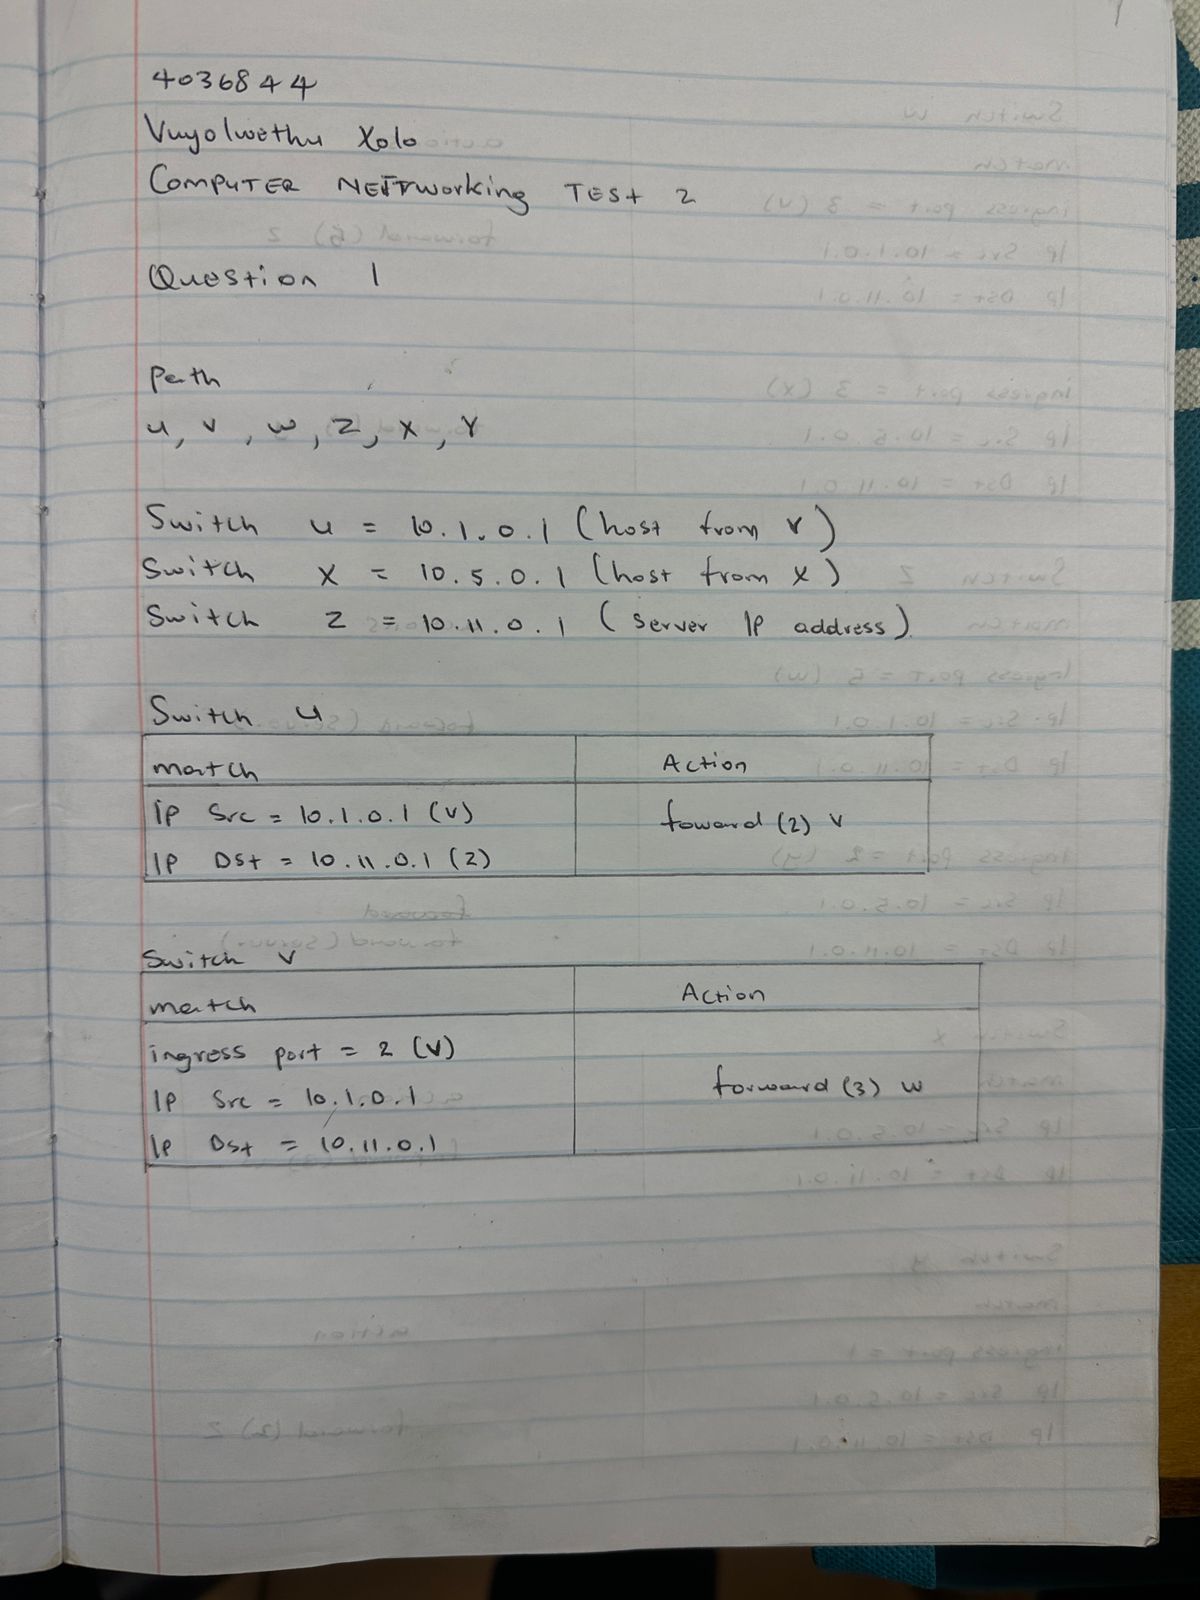 4036844
Vuyolwethu Xolo
COMPUTER NETTworking TEST 2
Question 1
Path
u, v, w, z, x, Y
Switch u = 10.1.0.1 (host from v)
Switch x = 10.5.0.1 (host from x)
Switch z = 10.11.0.1 (server IP address)
Switch u
match Action
IP Src = 10.1.0.1 (v) foward (2) v
IP Dst = 10.11.0.1 (2)
Switch v
match Action
ingress port = 2 (v)
IP Src = 10.1.0.1 forward (3) w
IP Dst = 10.11.0.1